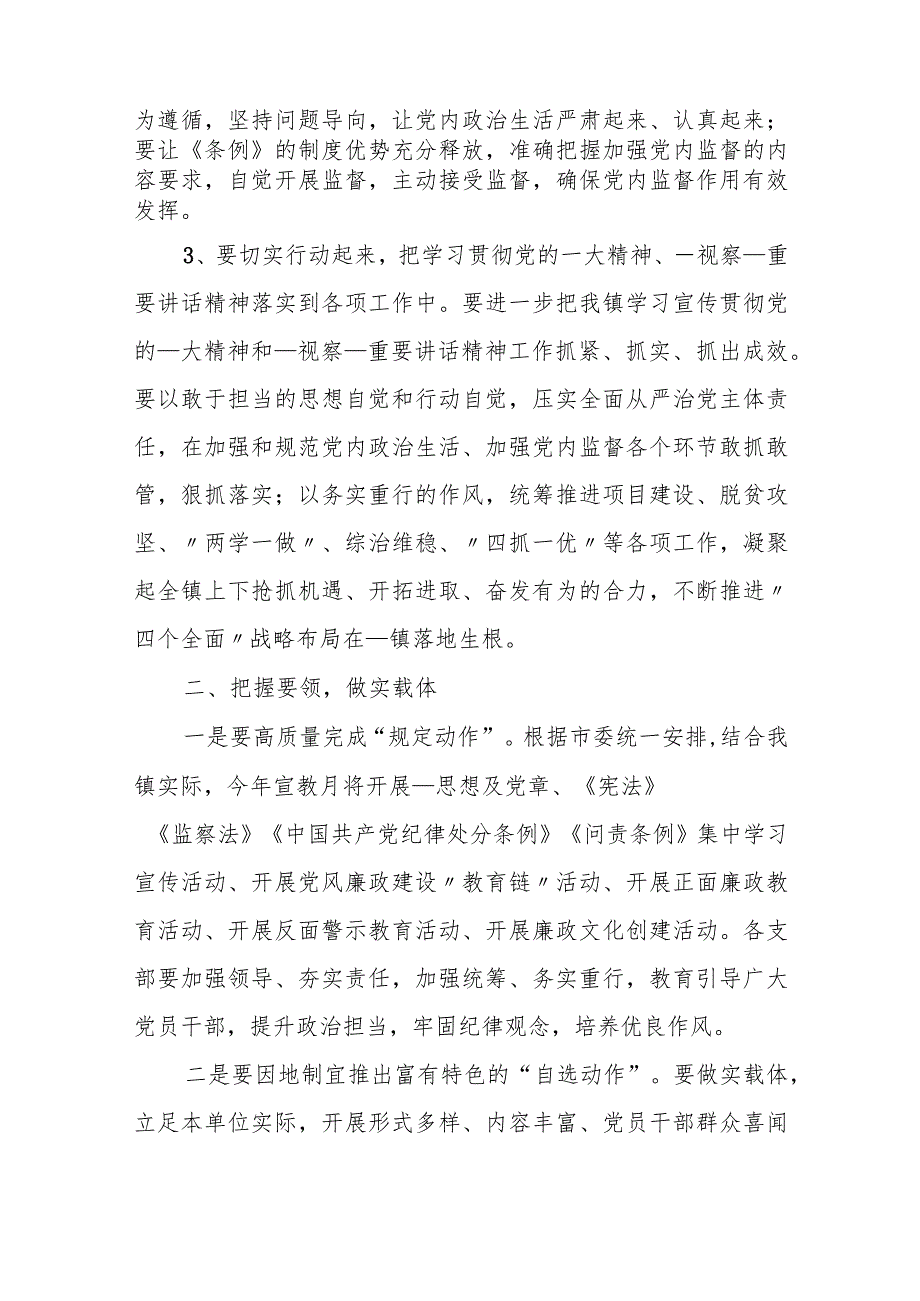 为遵循，坚持问题导向，让党内政治生活严肃起来、认真起来；
要让《条例》的制度优势充分释放，准确把握加强党内监督的内
容要求，自觉开展监督，主动接受监督，确保党内监督作用有效
发挥。
3、要切实行动起来，把学习贯彻党的一大精神、一视察—重
要讲话精神落实到各项工作中。要进一步把我镇学习宣传贯彻党
的—大精神和—视察—重要讲话精神工作抓紧、抓实、抓出成效。
要以敢于担当的思想自觉和行动自觉，压实全面从严治党主体责
任，在加强和规范党内政治生活、加强党内监督各个环节敢抓敢
管，狠抓落实；以务实重行的作风，统筹推进项目建设、脱贫攻
坚、〃两学一做〃、综治维稳、〃四抓一优〃等各项工作，凝聚
起全镇上下抢抓机遇、开拓进取、奋发有为的合力，不断推进〃
四个全面〃战略布局在—镇落地生根。
二、把握要领，做实载体
一是要高质量完成“规定动作”。根据市委统一安排,结合我
镇实际，今年宣教月将开展—思想及党章、《宪法》
《监察法》《中国共产党纪律处分条例》《问责条例》集中学习
宣传活动、开展党风廉政建设〃教育链〃活动、开展正面廉政教
育活动、开展反面警示教育活动、开展廉政文化创建活动。各支
部要加强领导、夯实责任，加强统筹、务实重行，教育引导广大
党员干部，提升政治担当，牢固纪律观念，培养优良作风。
二是要因地制宜推出富有特色的“自选动作”。要做实载体，
立足本单位实际，开展形式多样、内容丰富、党员干部群众喜闻